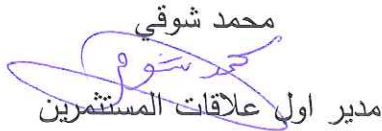 محمد شوقي
محمد شوقي
مدير اول علاقات المستثمرين